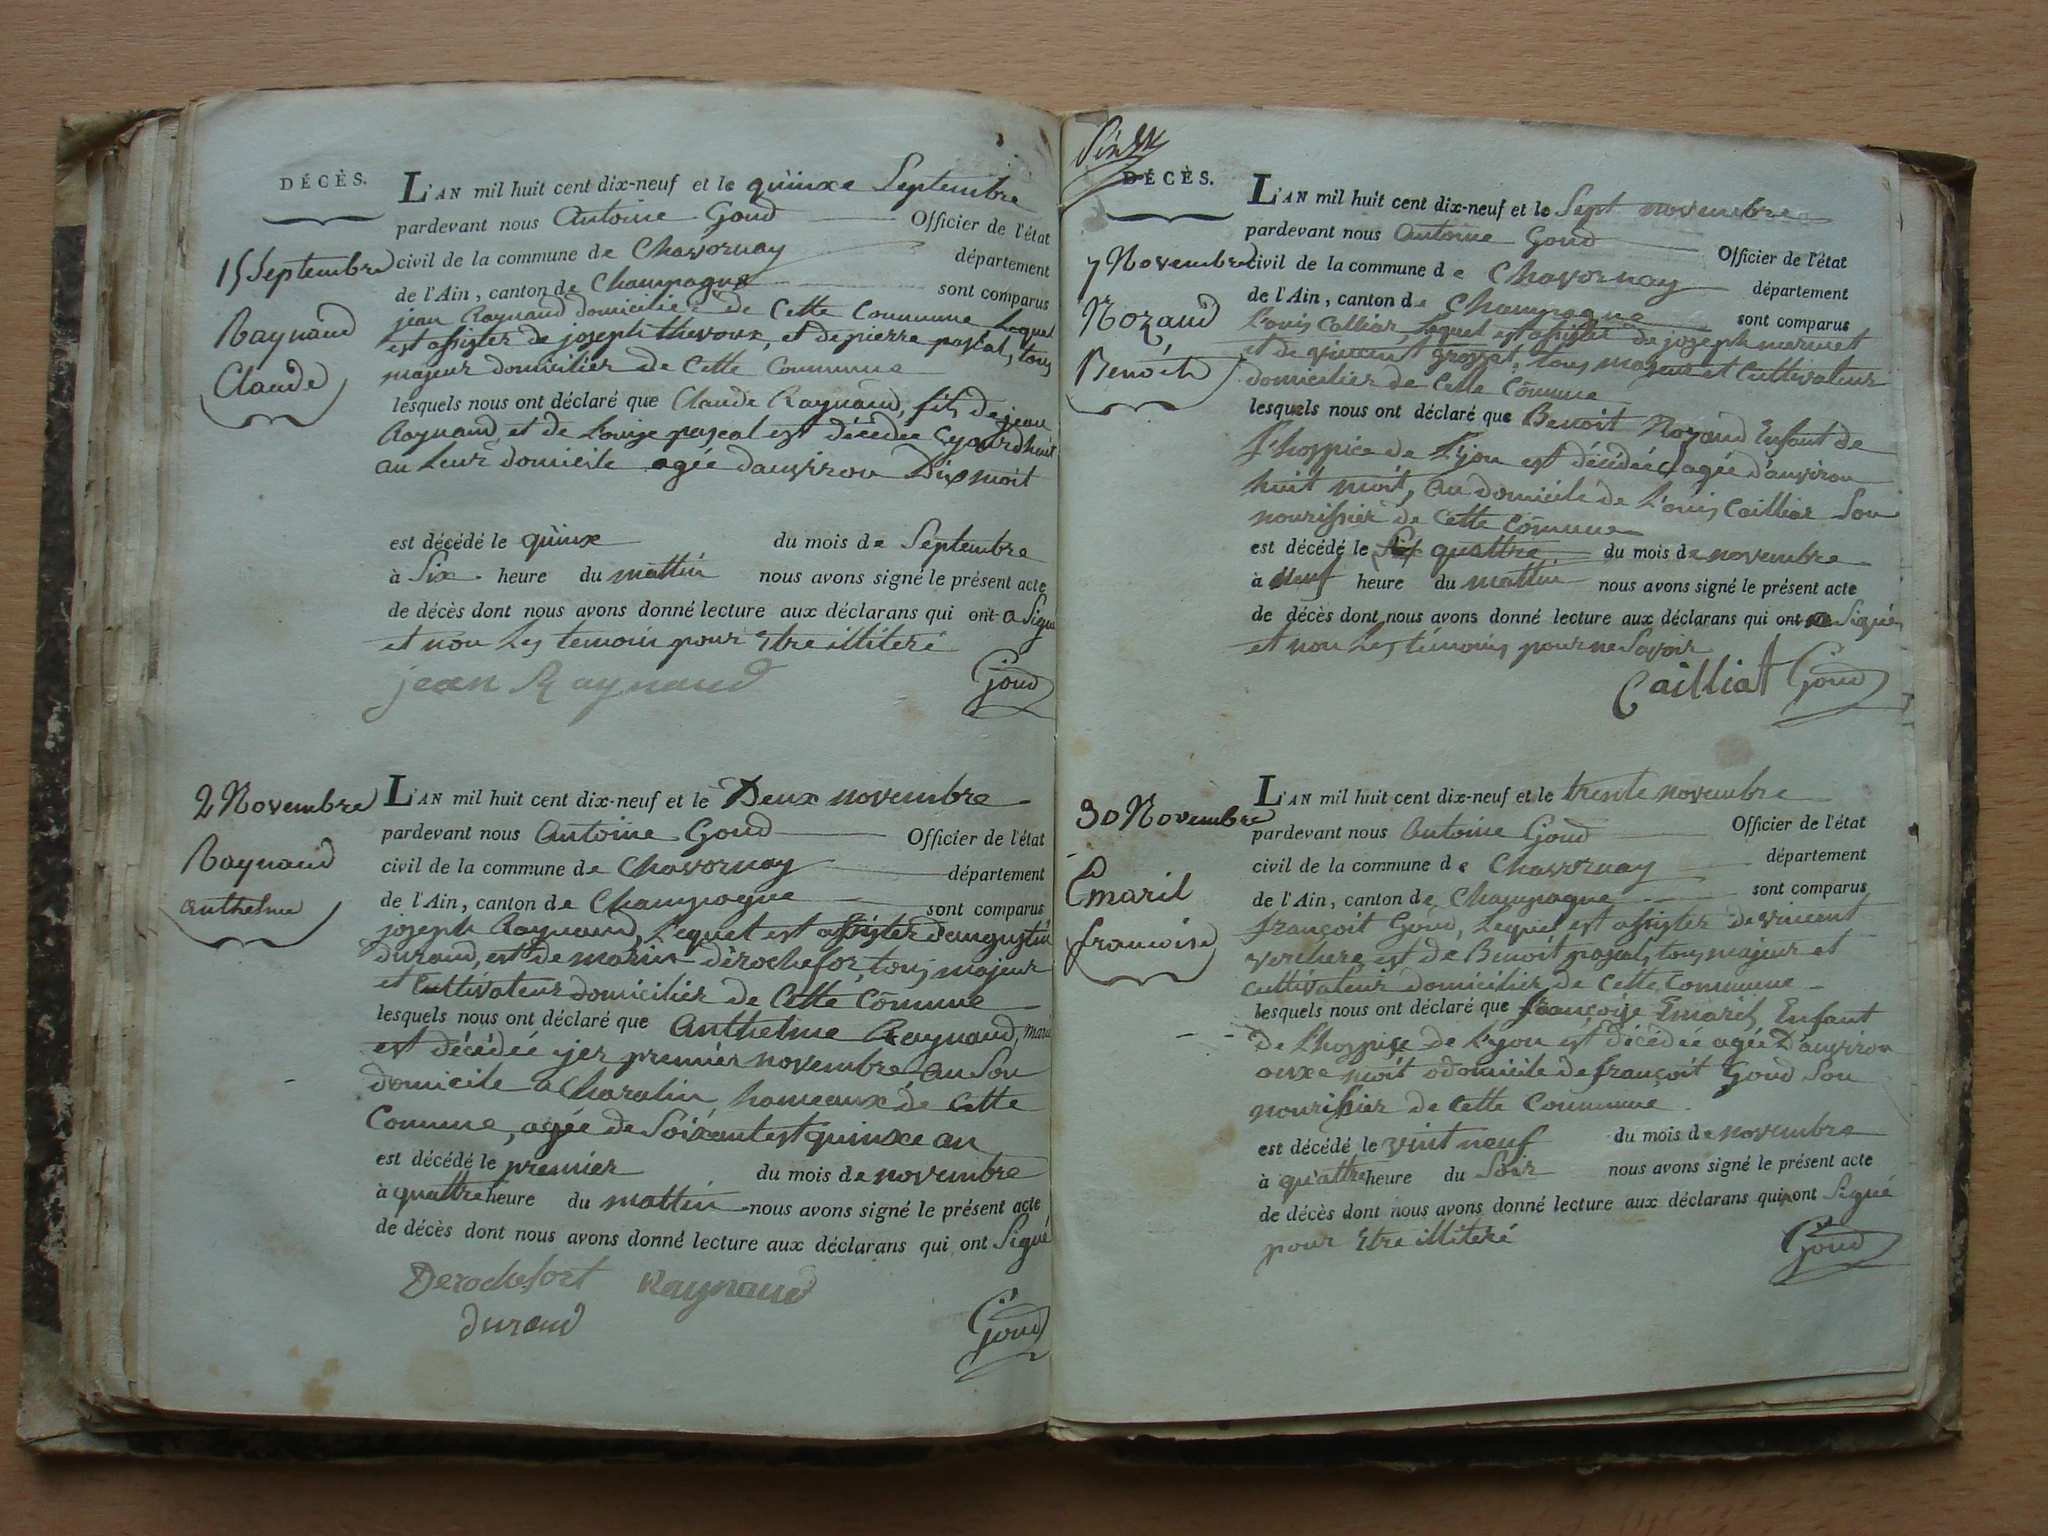 DÉCÈS.
L'AN mil huit cent dix-neuf et le quinxe Septembre
pardevant nous Antoine Goud Officier de l'état
15 Septembre civil de la commune de Chavornay département
de l'Ain, canton de Champagne sont comparus
Raynaud
Claude
jean Raynaud domicilié de Cette Commune Lequel
est assister de joseph thevoux, et de pierre pascal, tous
majeur domicilier de Cette Commune
lesquels nous ont déclaré que Claude Raynaud, fils de jean
Raynaud, et de Louise pascal est décédée Cejourdhuit
au leur domicile agée danviron Dix moit
est décédé le quinxe du mois de Septembre
à Six heure du mattin nous avons signé le présent acte
de décès dont nous avons donné lecture aux déclarans qui ont a Signé
et nôn Les temoin pour Etre illiteré
jean Raynaud Goud
2 Novembre
Raynaud
anthelme
L'AN mil huit cent dix-neuf et le Deux novembre
pardevant nous Antoine Goud Officier de l'état
civil de la commune de Chavornay département
de l'Ain, canton de Champagne sont comparus
joseph Raynaud, Lequel est assister d'augustin
durand, est de marin dérochefor, tous majeur
et Cultivateur domicilier de Cette Cômmune
lesquels nous ont déclaré que Anthelme Raynaud,
est décédée yer premier novembre au Son
domicile a Charalin hameaux de Cette
Comune, agée de Soixantest quinxe an
est décédé le premier du mois de novembre
à quattre heure du mattin nous avons signé le présent acte
de décès dont nous avons donné lecture aux déclarans qui ont Signé
Derochefort Raynaud
durand Goud
DÉCÈS.
L'AN mil huit cent dix-neuf et le Sept novembre
pardevant nous Antoine Goud Officier de l'état
7 Novembre civil de la commune de Chavornay département
de l'Ain, canton de Champagne sont comparus
Nozaud
Benoit
Louis Calliat, Lequel est assister de joseph mermet
et de vincent grosset, tous majeur et Cultivateur
domicilier de Cette Cômune
lesquels nous ont déclaré que Benoit Nozaud Enfant de
L'hospice de Lyon est décédée, agée d'anviron
huit moit, au domicile de Louis Cailliat Son
nourissier de Cette Cômune
est décédé le quattre du mois de novembre
à neuf heure du mattin nous avons signé le présent acte
de décès dont nous avons donné lecture aux déclarans qui ont a Signés
et non Les témoins pour ne Savoir
Cailliat Goud
30 Novembre
Emaril
francoise
L'AN mil huit cent dix-neuf et le trente novembre
pardevant nous Antoine Goud Officier de l'état
civil de la commune de Chavornay département
de l'Ain, canton de Champagne sont comparus
françoit Goud, Lequel est assister de vincent
est de Benoit pascal, tous majeur et
cultivateur domicilier de Cette Commune
lesquels nous ont déclaré que françoise Emaril, Enfant
De L'hospice de Lyon est décédée agée D'anviron
onxe moit odomicile de françoit Goud Son
nourissier de Cette Commune
est décédé le vint neuf du mois de novembre
à quattre heure du Soir nous avons signé le présent acte
de décès dont nous avons donné lecture aux déclarans qui ont Signé
pour Etre illiteré
Goud